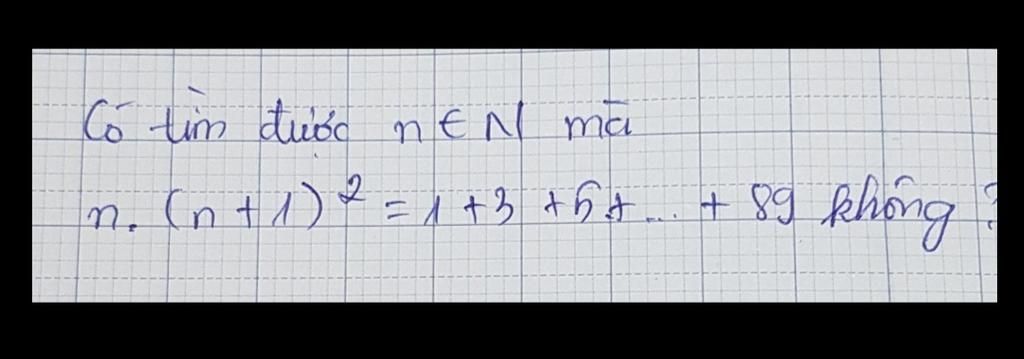 Có tìm được n ∈ N mà
n. (n + 1)² = 1 + 3 + 5 + ... + 89 không ?